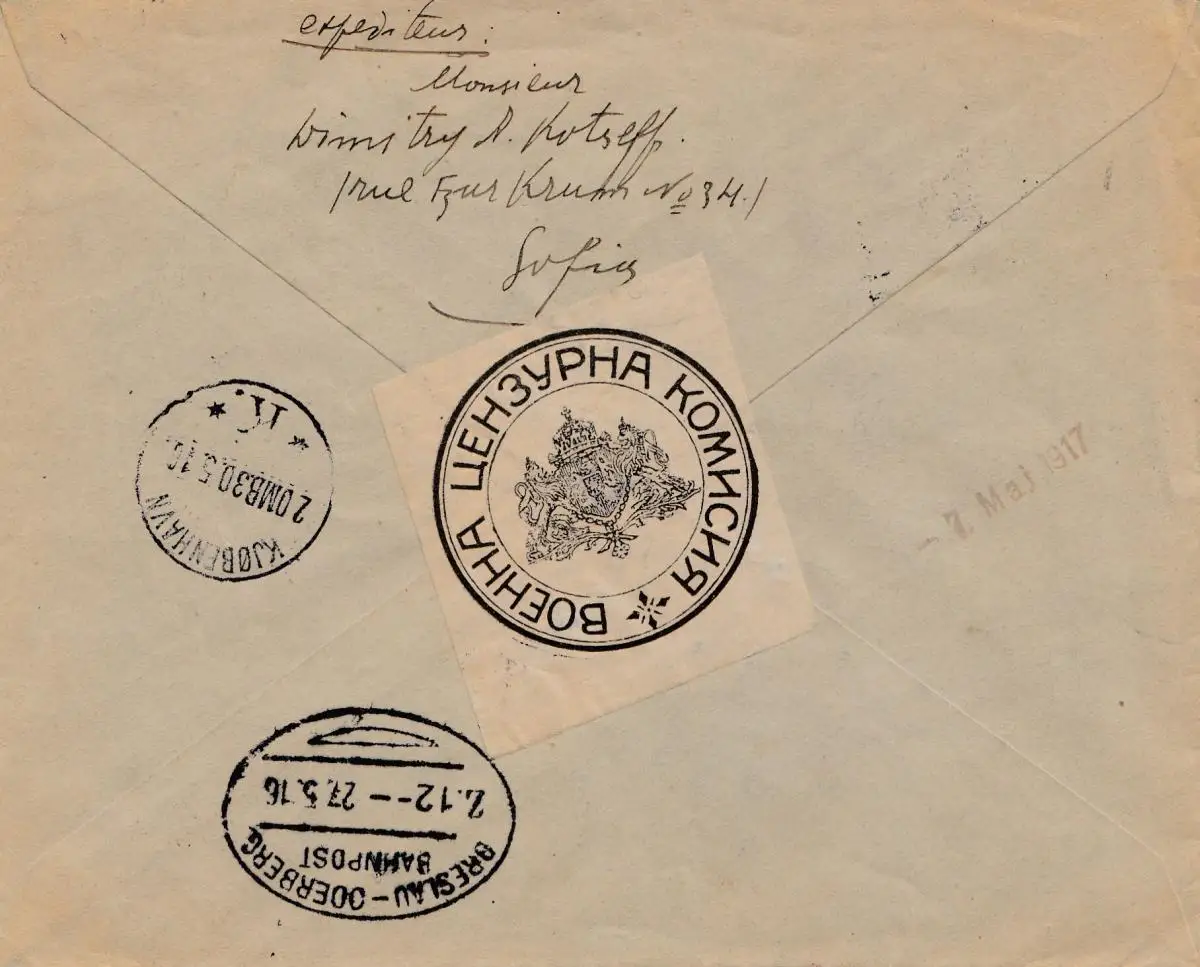 expediteur:
Monsieur
Dimitry D. Kotzeff.
/rue Tzar Krum № 34./
Sofia
ВОЕННА ЦЕНЗУРНА КОМИСИЯ
K.
2 OMB 30.5.16
KJØBENHAVN
7. Maj 1917
BRESLAU-ODERBERG
BAHNPOST
Z.12-- 27.5.16